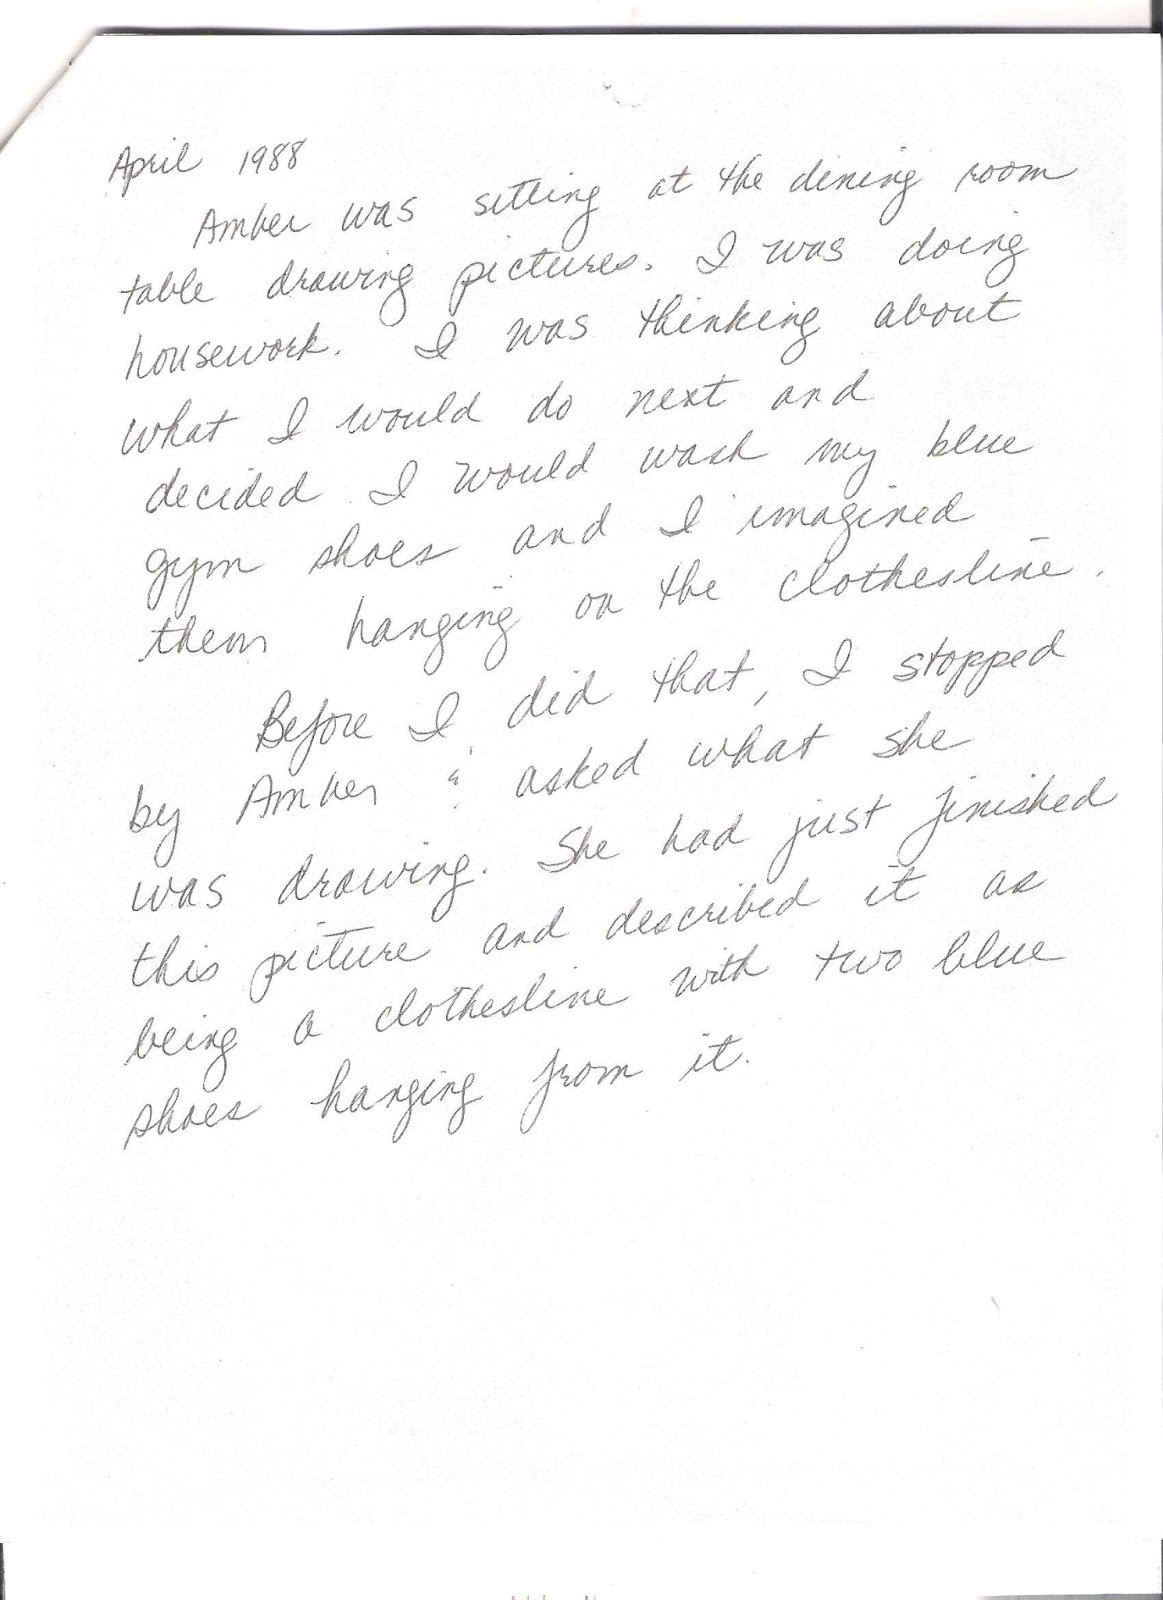 April 1988
Amber was sitting at the dining room
table drawing pictures. I was doing
housework. I was thinking about
what I would do next and
decided I would wash my blue
gym shoes and I imagined
them hanging on the clothesline.
Before I did that, I stopped
by Amber & asked what she
was drawing. She had just finished
this picture and described it as
being a clothesline with two blue
shoes hanging from it.